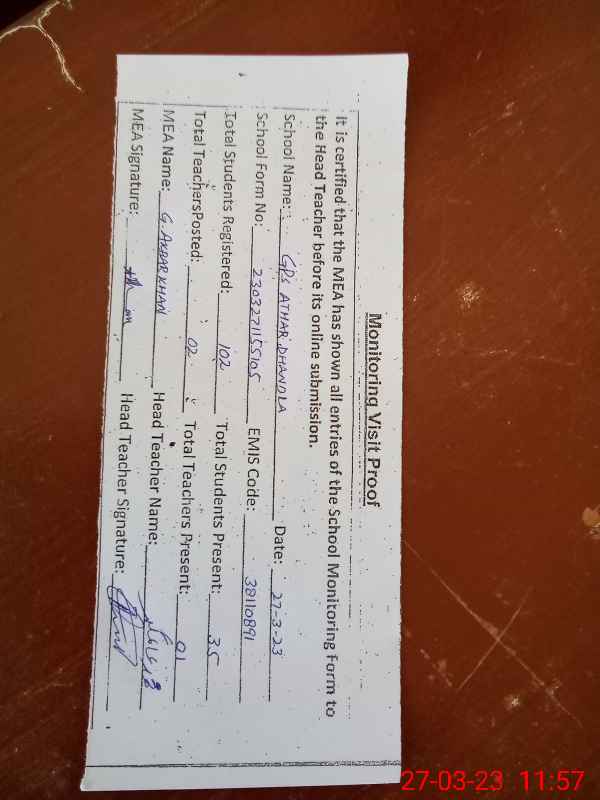 Monitoring Visit Proof
It is certified that the MEA has shown all entries of the School Monitoring Form to
the Head Teacher before its online submission.
School Name: GPS ATHAR DHANDLA Date: 27-3-23
School Form No: 2303271155105 EMIS Code: 38110891
Total Students Registered: 102 Total Students Present: 35
Total TeachersPosted: 02 Total Teachers Present: 01
MEA Name: G. AKBAR KHAN Head Teacher Name:
MEA Signature: Head Teacher Signature:
27-03-23 11:57